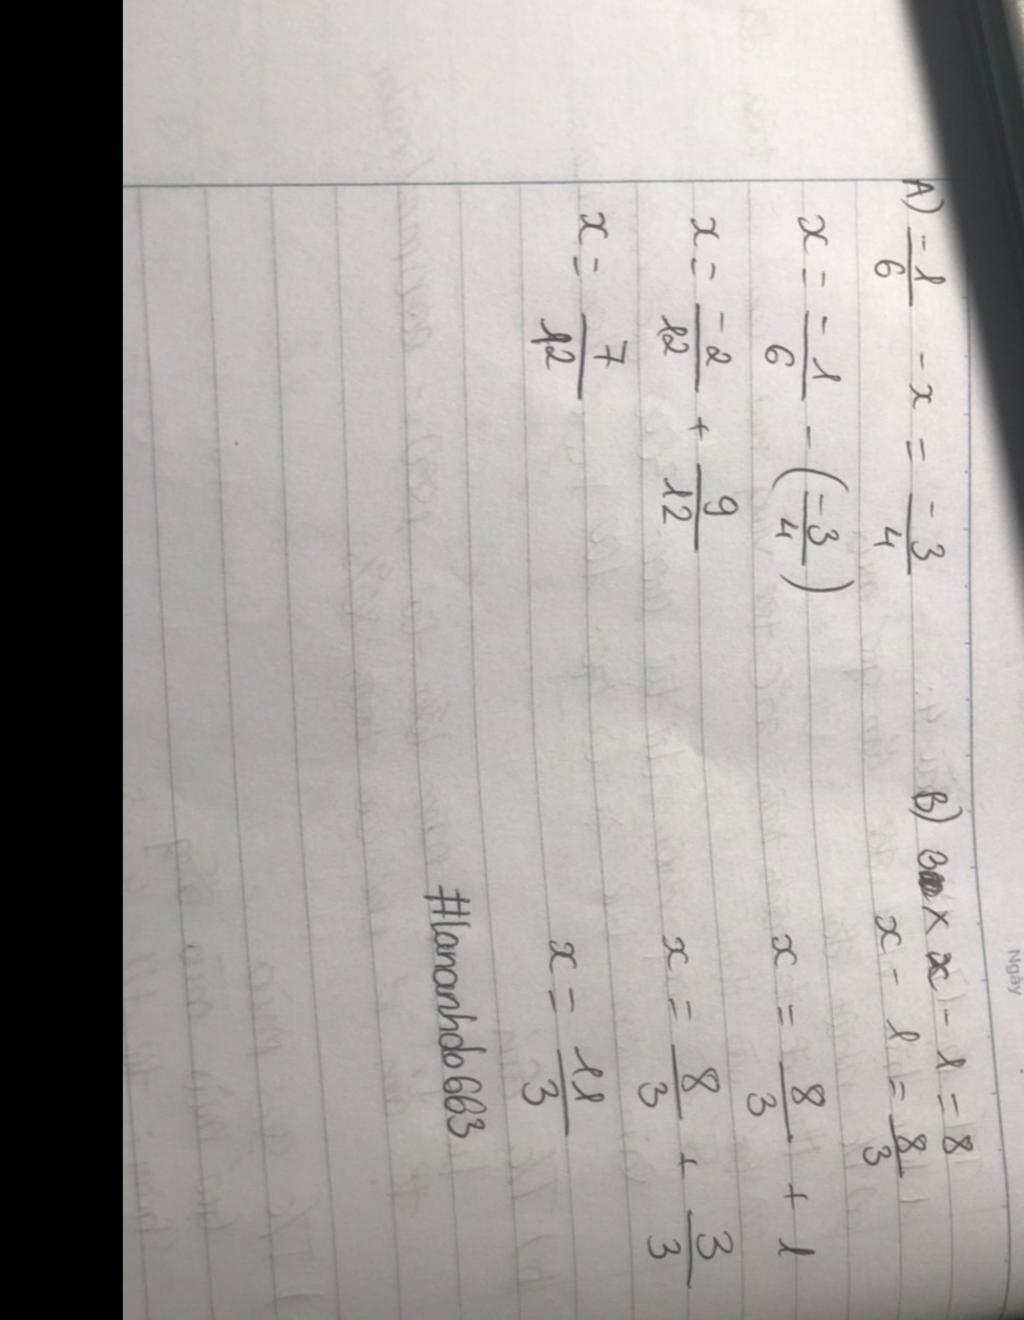 Ngày
A) -1/6 - x = -3/4
x = -1/6 - (-3/4)
x = -2/12 + 9/12
x = 7/12
B) 3 × x - 1 = 8
x - 1 = 8/3
x = 8/3 + 1
x = 8/3 + 3/3
x = 11/3
#lananhdo663